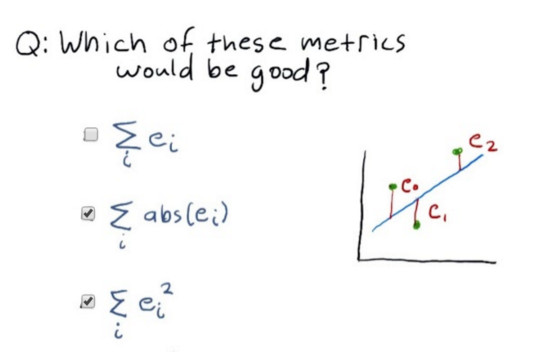 Q: Which of these metrics
would be good?
∑ eᵢ
i
∑ abs(eᵢ)
i
∑ eᵢ²
i
e₀
e₁
e₂